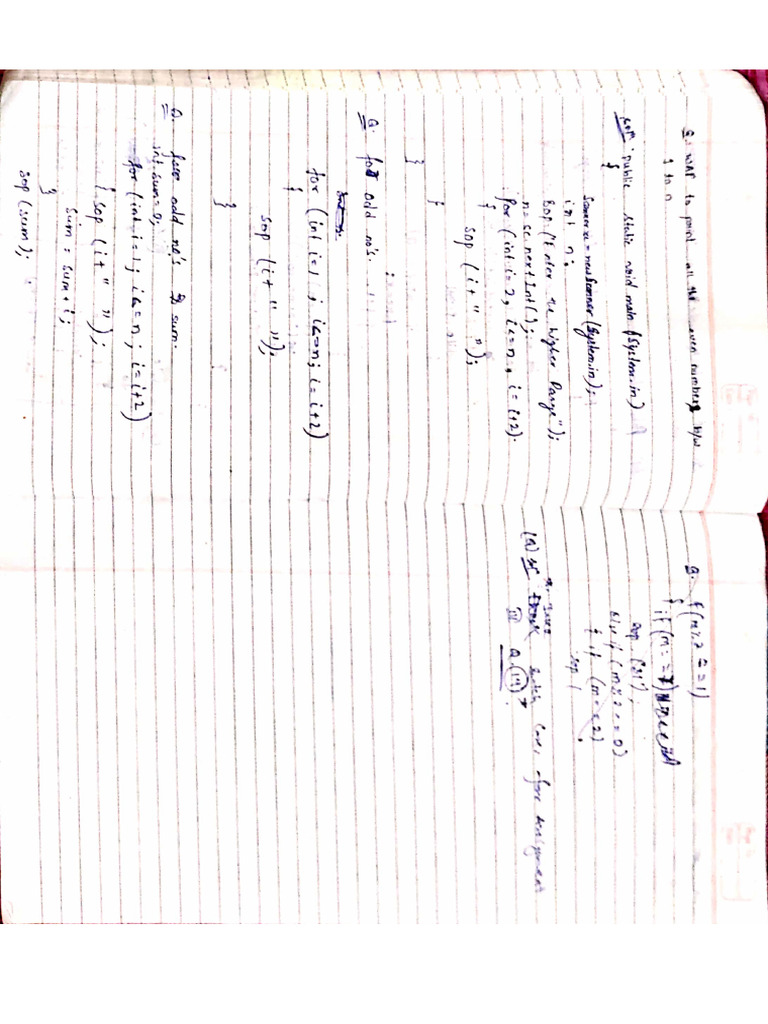 Q. WAP to print all the even numbers b/w
1 to n
soln public static void main (System.in)
{
Scanner sc = new Scanner (System.in);
int n;
Sop ("Enter the higher Range");
n = sc.nextInt();
for (int i=2, i<=n, i=i+2).
{
Sop (i+" ");
}
}
Q. for odd no's.
for (int i=1; i<=n; i=i+2)
{
Sop (i+" ");
}
Q. for odd no's & sum.
int sum=0;
for (int i=1; i<=n; i=i+2)
{ sop (i+" ");
sum = sum+i;
}
sop (sum);
Q. if (m%2==1)
{ if (m==
Sop ("31");
else if (m%2==0)
{ if (m==2)
Sop (
(Q) switch case, for assignment
III Q.